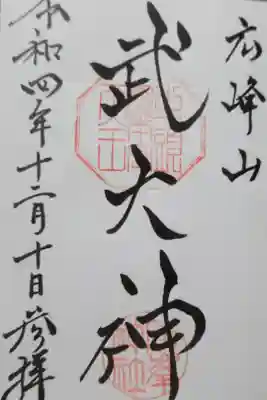 広峰山
武大神
令和四年十二月十日参拝